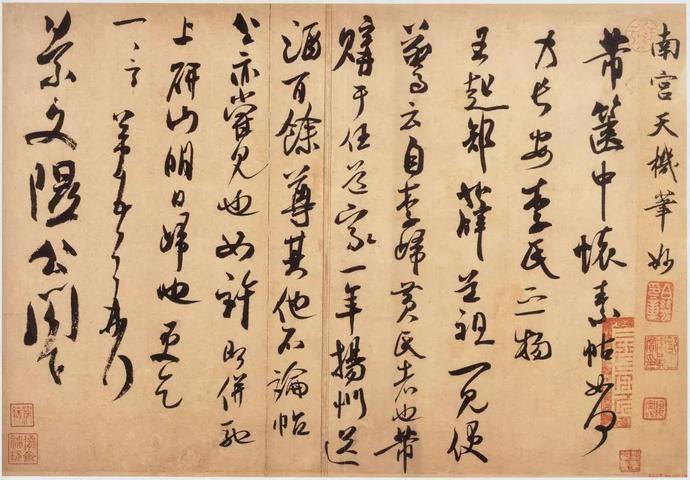 南宮天機筆妙
芾篋中懷素帖如何
乃長安李氏之物
王起部薛道祖一見便
驚云自李歸黃氏者也芾
購于任道家一年揚州送
酒百餘尊其他不論帖
公亦嘗見也如許即併馳
上研山明日歸也更乞
一言芾頓首再拜
景文隰公閤下